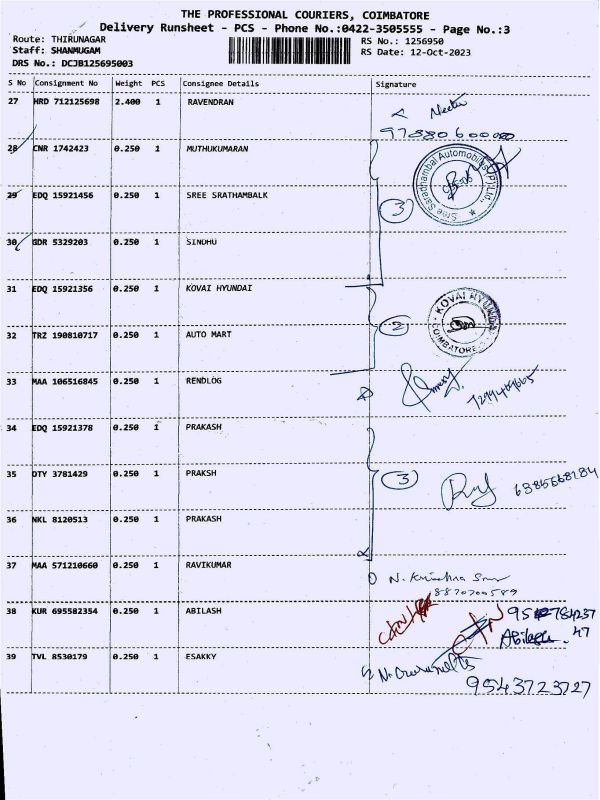 THE PROFESSIONAL COURIERS, COIMBATORE
Delivery Runsheet - PCS - Phone No.:0422-3505555 - Page No.:3
Route: THIRUNAGAR
Staff: SHANMUGAM
DRS No.: DCJB125695003
RS No.: 1256950
RS Date: 12-Oct-2023
S No Consignment No Weight PCS Consignee Details Signature
27 HRD 712125698 2.400 1 RAVENDRAN
28 CNR 1742423 0.250 1 MUTHUKUMARAN
Sree Saradhambal Automobiles (P) Ltd.,
29 EDQ 15921456 0.250 1 SREE SRATHAMBALK
3
30 GDR 5329203 0.250 1 SINDHU
31 EDQ 15921356 0.250 1 KOVAI HYUNDAI
KOVAI HYUNDAI
COIMBATORE
2
32 TRZ 190810717 0.250 1 AUTO MART
33 MAA 106516845 0.250 1 RENDLOG
34 EDQ 15921378 0.250 1 PRAKASH
35 DTY 3781429 0.250 1 PRAKSH
3
36 NKL 8120513 0.250 1 PRAKASH
37 MAA 571210660 0.250 1 RAVIKUMAR
8870700589
38 KUR 695582354 0.250 1 ABILASH
Abilash
47
39 TVL 8530179 0.250 1 ESAKKY
9543723727